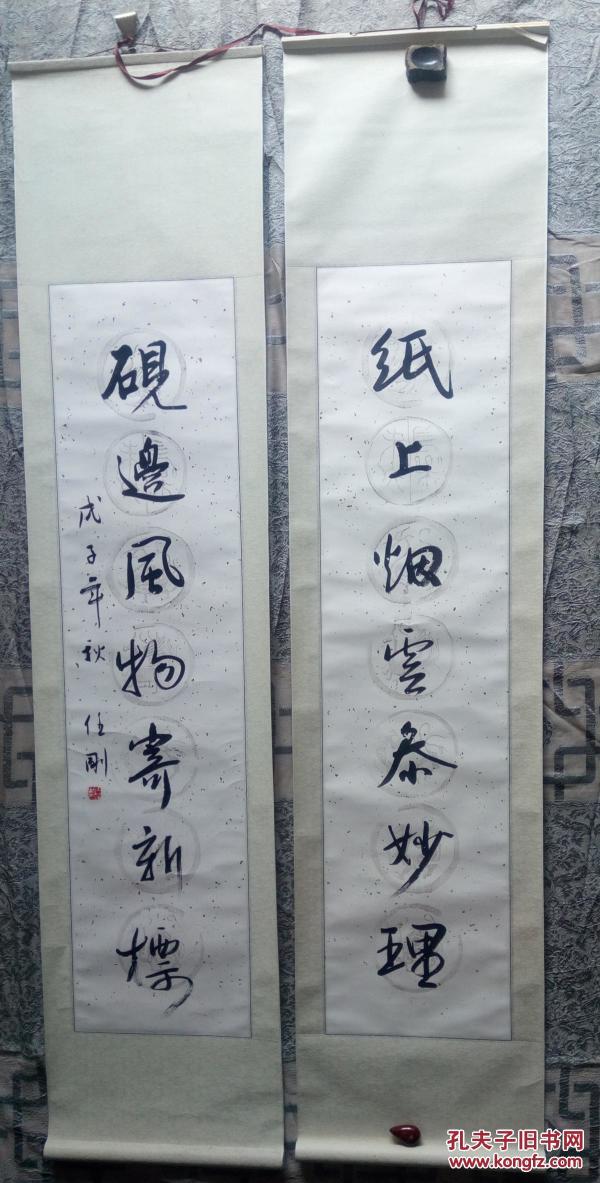 紙上烟雲叅妙理
硯邊風物寄新標
戊子年秋 任剛
孔夫子旧书网
www.kongfz.com